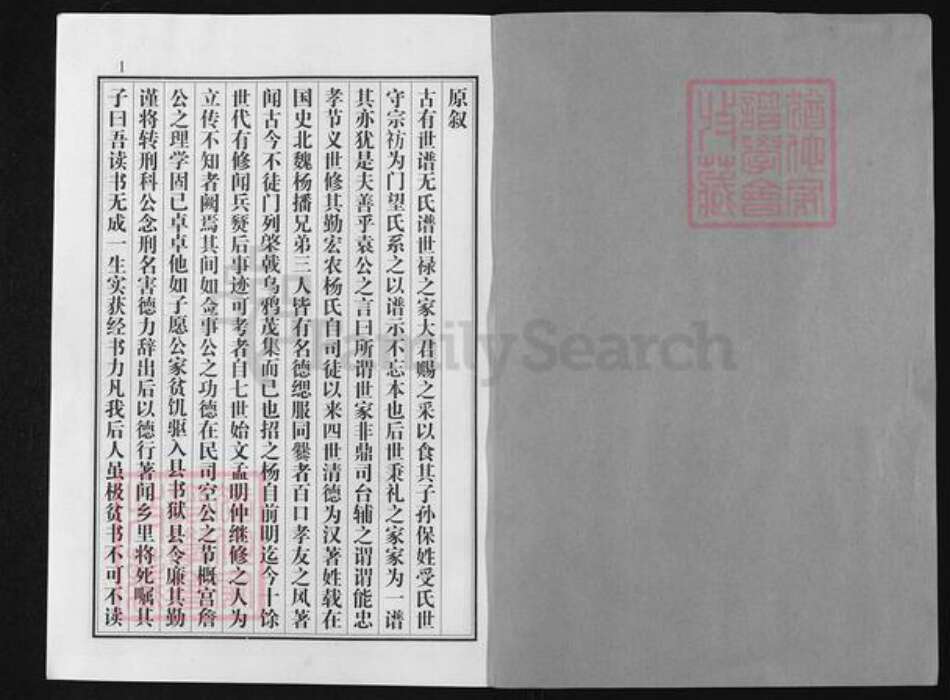 原叙
古有世谱无氏谱世禄之家大君赐之采以食其子孙保姓受氏世
守宗祊为门望氏系之以谱示不忘本也后世秉礼之家家为一谱
其亦犹是夫善乎袁公之言曰所谓世家非鼎司台辅之谓谓能忠
孝节义世修其勤宏农杨氏自司徒以来四世清德为汉著姓载在
国史北魏杨播兄弟三人皆有名德缌服同爨者百口孝友之风著
闻古今不徒门列棨戟乌鸦茂集而已也招之杨自前明迄今十馀
世代有修闻兵燹后事迹可考者自七世始文孟明仲继修之人为
立传不知者阙焉其间如佥事公之功德在民司空公之节概宫詹
公之理学固已卓卓他如子愿公家贫饥驱入县书狱县令廉其勤
谨将转刑科公念刑名害德力辞出后以德行著闻乡里将死嘱其
子曰吾读书无成一生实获经书力凡我后人虽极贫书不可不读
1
FamilySearch